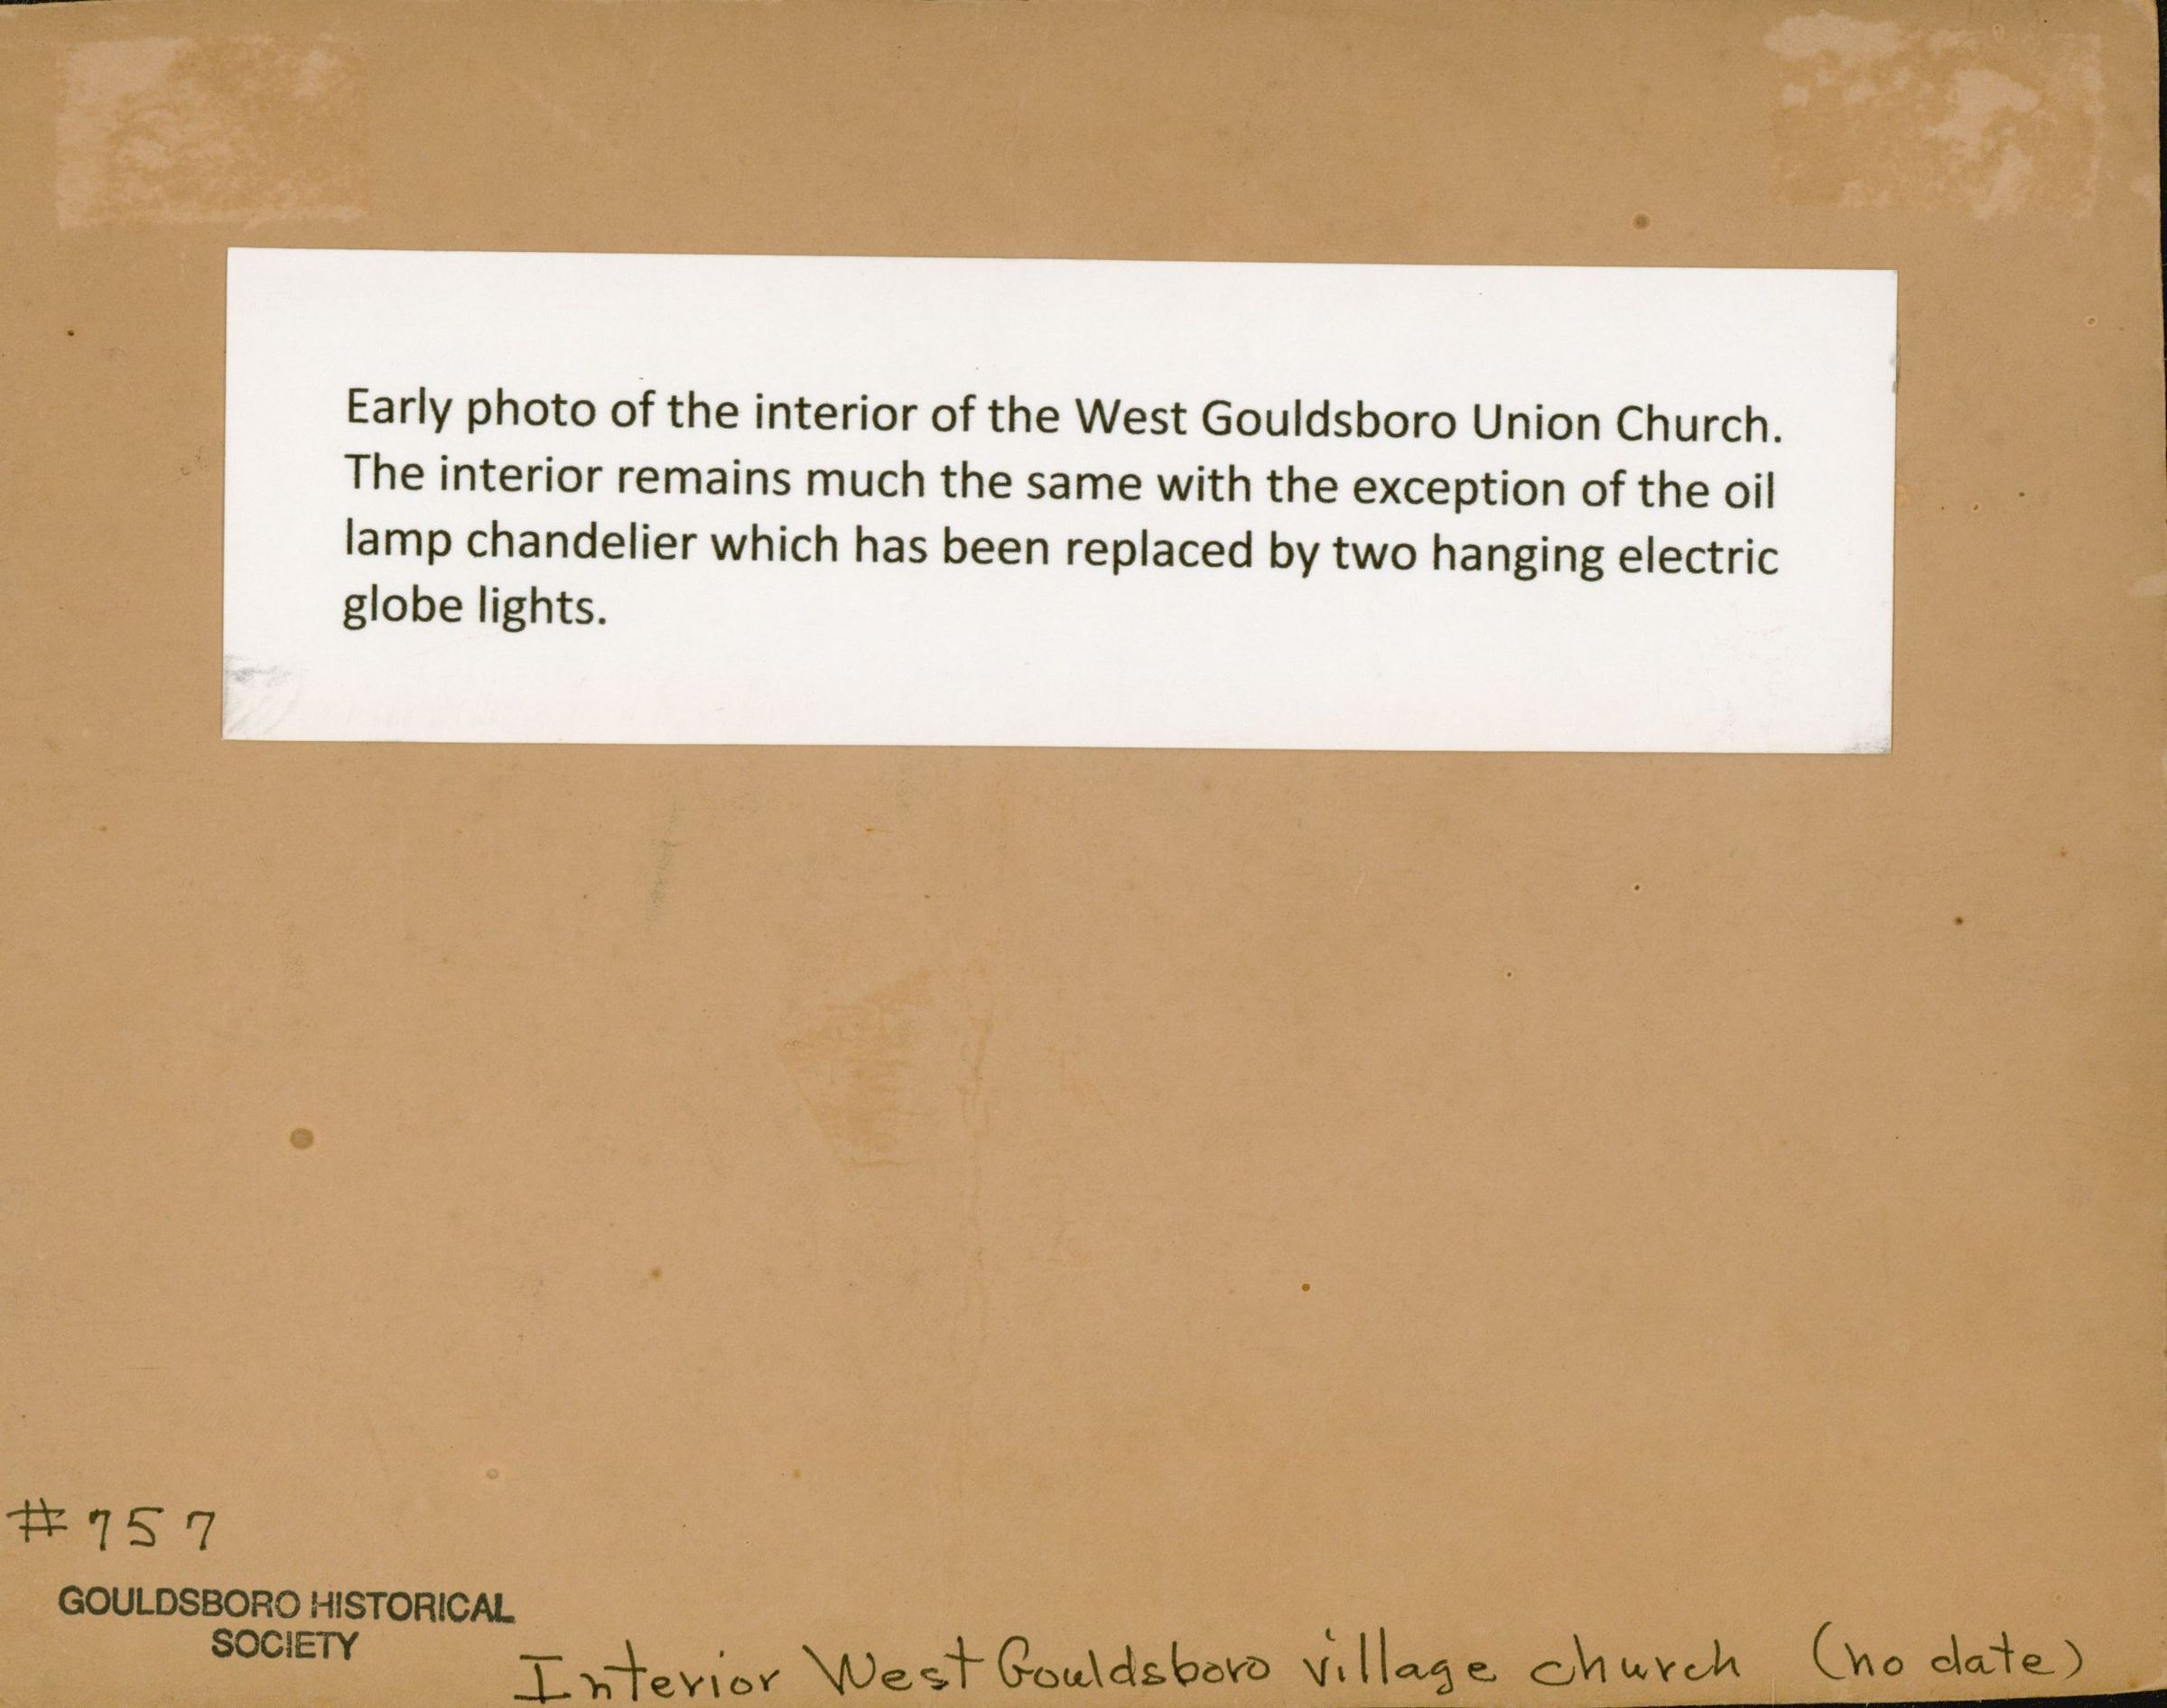 Early photo of the interior of the West Gouldsboro Union Church.
The interior remains much the same with the exception of the oil
lamp chandelier which has been replaced by two hanging electric
globe lights.
#757
GOULDSBORO HISTORICAL
SOCIETY
Interior West Gouldsboro village church (no date)